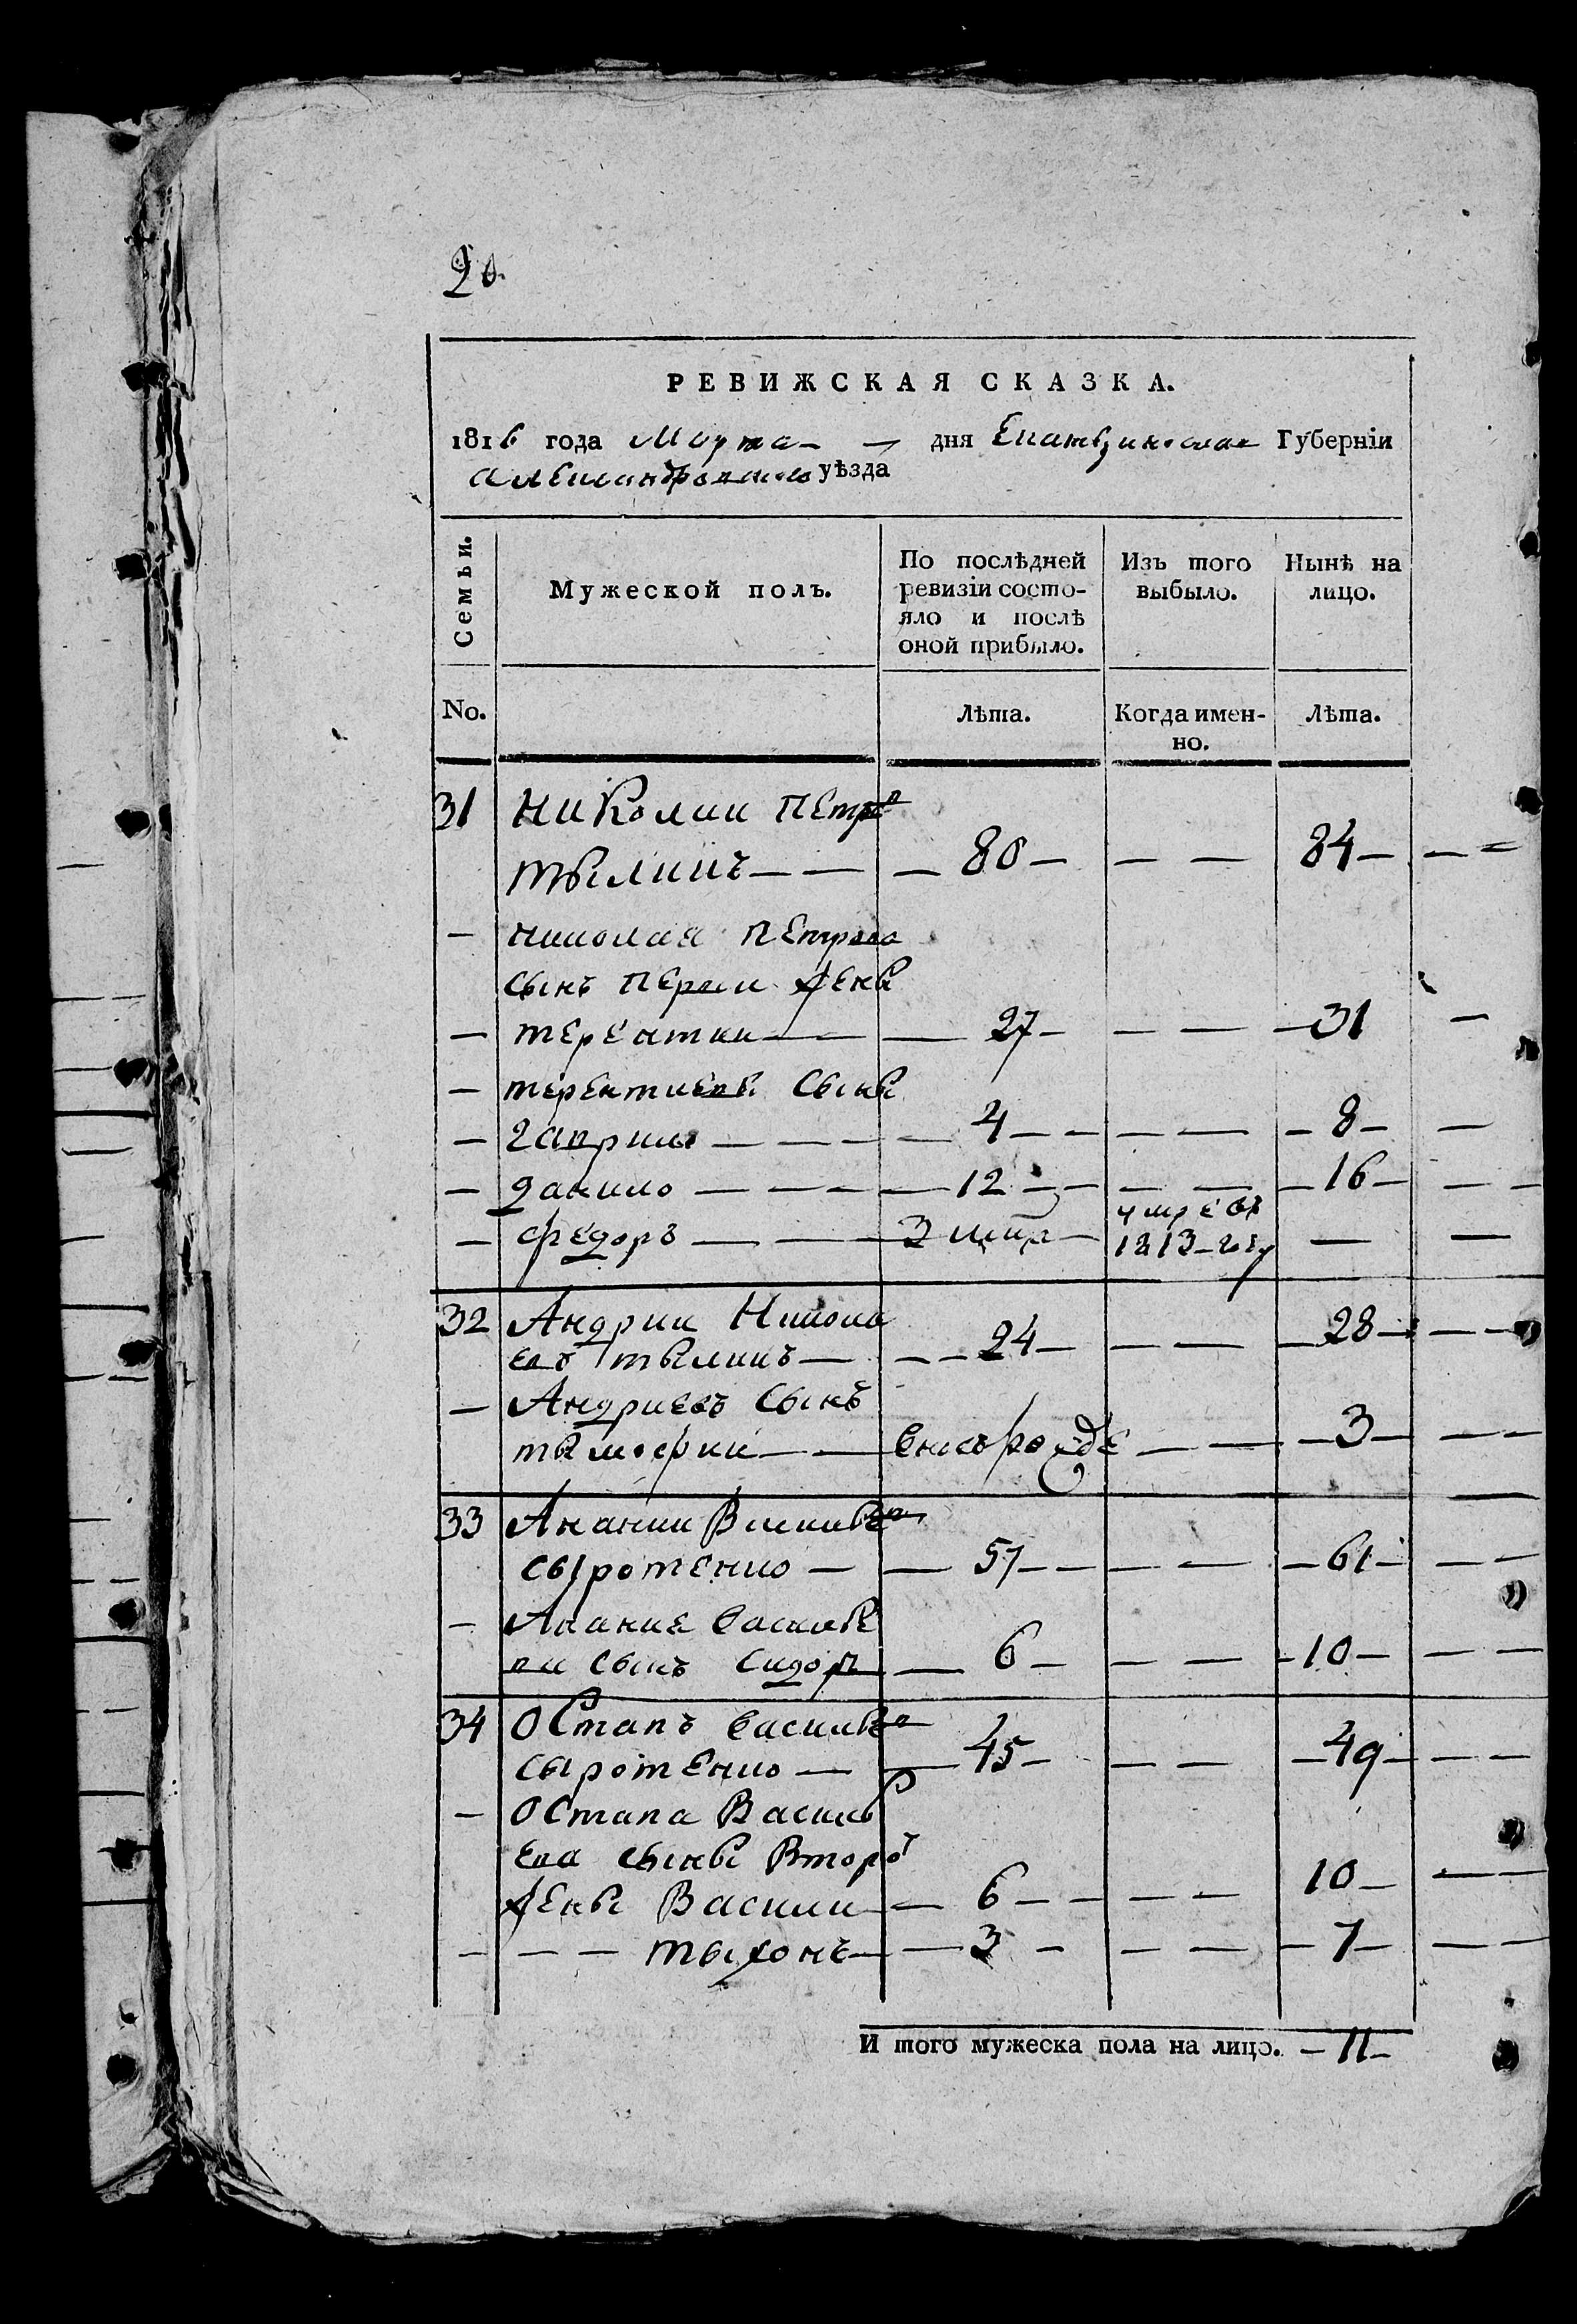 20.
РЕВИЖСКАЯ СКАЗКА.
1816 года Марта — дня Екатеринослав Губерніи
Александровского уѣзда
Семьи.
Мужеской полъ.
По послѣдней ревизіи состояло и послѣ оной прибыло.
Изъ того выбыло.
Нынѣ на лицо.
No.
Лѣта.
Когда именно.
Лѣта.
31 Николаи Петров
тыликъ — — — 80 — — — 84 — — —
— николая Петрова
сынъ Первои жены
— терентии — — — 27 — — — — 31 —
— терентиевы Сыны
— гаврило — — — — 4 — — — — — 8 — —
— данило — — — — 12 — — — — — 16 — — —
— федоръ — — — 3 умре въ 1813 году — —
32 Андрии Никола
евъ тыликъ — — — 24 — — — — 28 — — —
— Андриевъ Сынъ
тымофии — — вновьрожде — — — 3 — — —
33 Анании Василье
сыротенко — — 57 — — — — — 61 — — —
— Анание василье
ва сынъ Сидор — 6 — — — — 10 — — —
34 Остапъ василье
сыротенко — — 45 — — — — 49 — — —
— Остапа Василь
ева сыны Второ
жены Васили — 6 — — — — 10 — — —
— — — тыхонъ — — 3 — — — — 7 — — —
И того мужеска пола на лицо. — 11 —